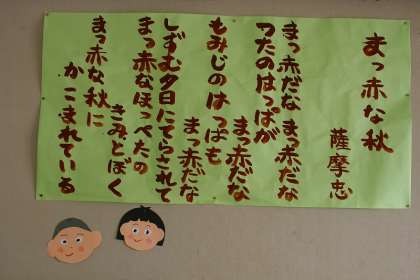 まっ赤な秋
薩摩忠
まっ赤だな まっ赤だな
つたのはっぱが
まっ赤だな
もみじのはっぱも
まっ赤だな
しずむ夕日にてらされて
まっ赤なほっぺたの
きみとぼく
まっ赤な秋に
かこまれている